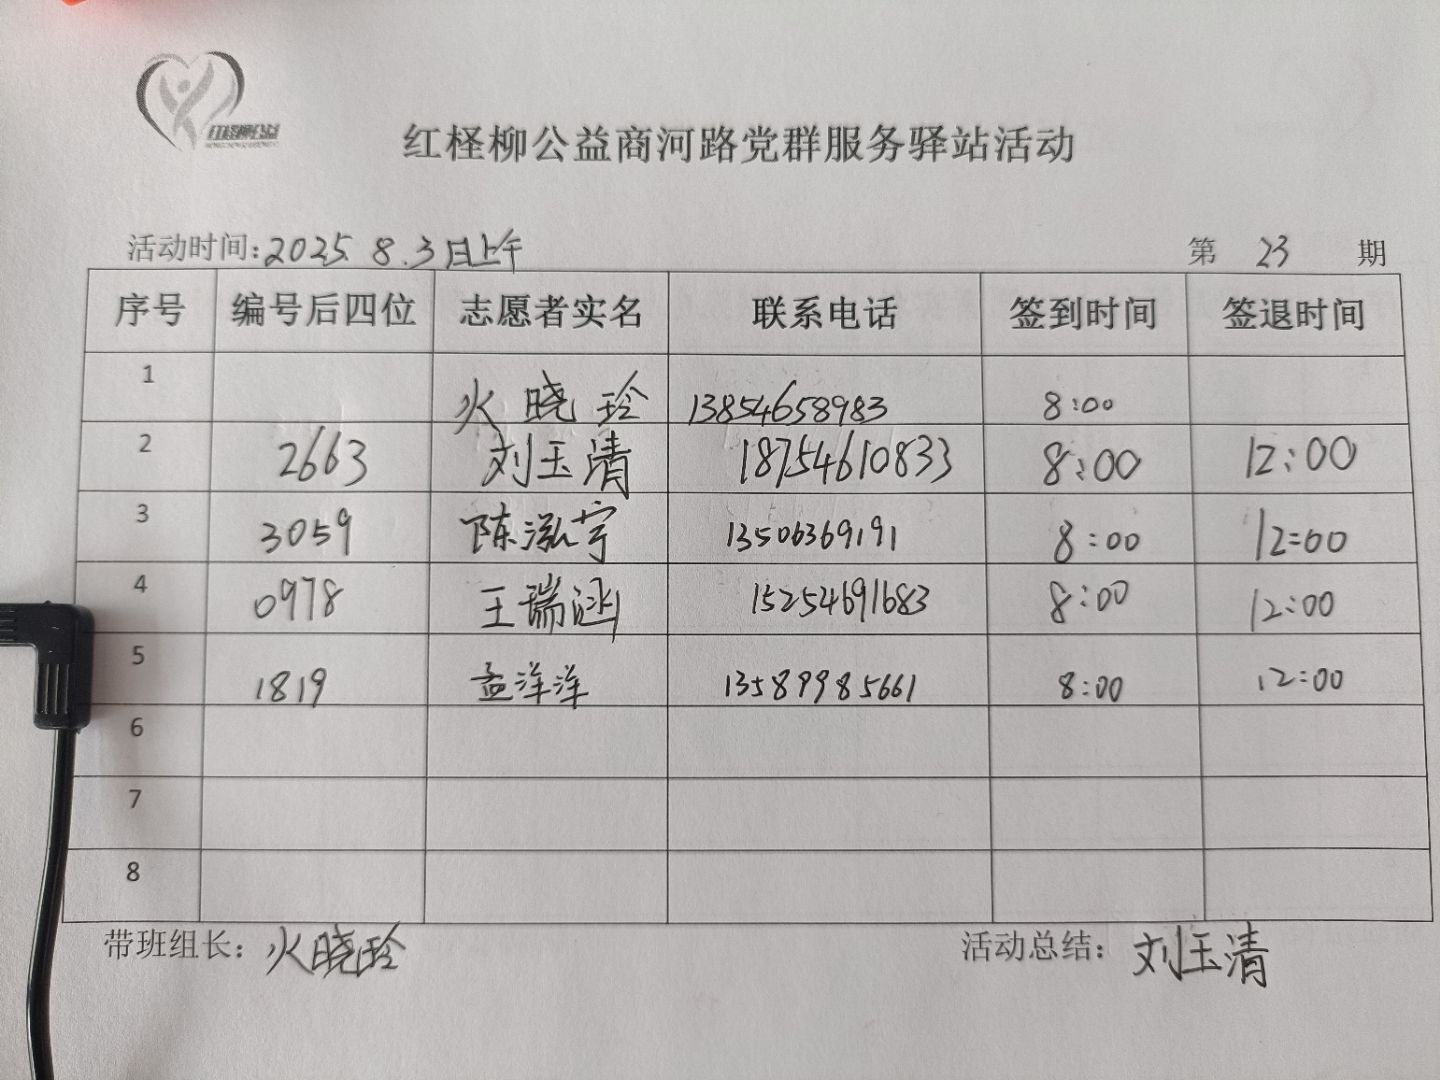 红柽柳公益
红柽柳公益商河路党群服务驿站活动
活动时间:2025.8.3日上午 第 23 期
序号 编号后四位 志愿者实名 联系电话 签到时间 签退时间
1 火晓玲 13854658983 8:00
2 2663 刘玉清 18754610833 8:00 12:00
3 3059 陈泓宇 13506369191 8:00 12:00
4 0978 王瑞涵 15254691683 8:00 12:00
5 1819 孟洋洋 13589985661 8:00 12:00
6
7
8
带班组长: 火晓玲 活动总结: 刘玉清